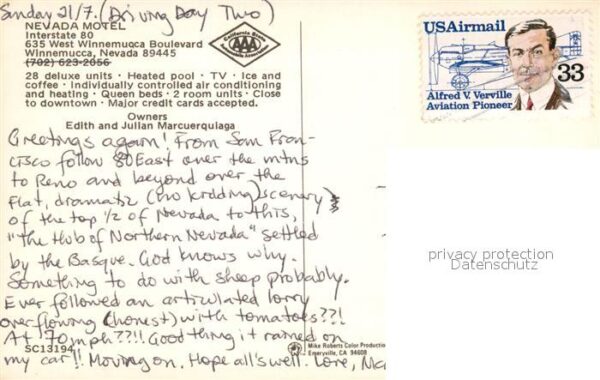 Sunday 21/7. (Driving Day Two)
NEVADA MOTEL
Interstate 80
635 West Winnemucca Boulevard
Winnemucca, Nevada 89445
(702) 623-2056
California State
AAA
Automobile Association
28 deluxe units · Heated pool · TV · Ice and
coffee · Individually controlled air conditioning
and heating · Queen beds · 2 room units · Close
to downtown · Major credit cards accepted.
Owners
Edith and Julian Marcuerquiaga
Greetings again! From San Fran-
cisco follow 80 East over the mtns
to Reno and beyond over the
flat, dramatic (no kidding) scenery
of the top 1/2 of Nevada to this,
"the Hub of Northern Nevada" settled
by the Basque. God knows why.
Something to do with sheep probably.
Ever followed an articulated lorry
overflowing (honest) with tomatoes??!
At 70 mph??!! Good thing it rained on
my car!! Moving on. Hope all's well. Love,
SC13194
Mike Roberts Color Production
Emeryville, CA 94608
USAirmail
33
Alfred V. Verville
Aviation Pioneer
privacy protection
Datenschutz